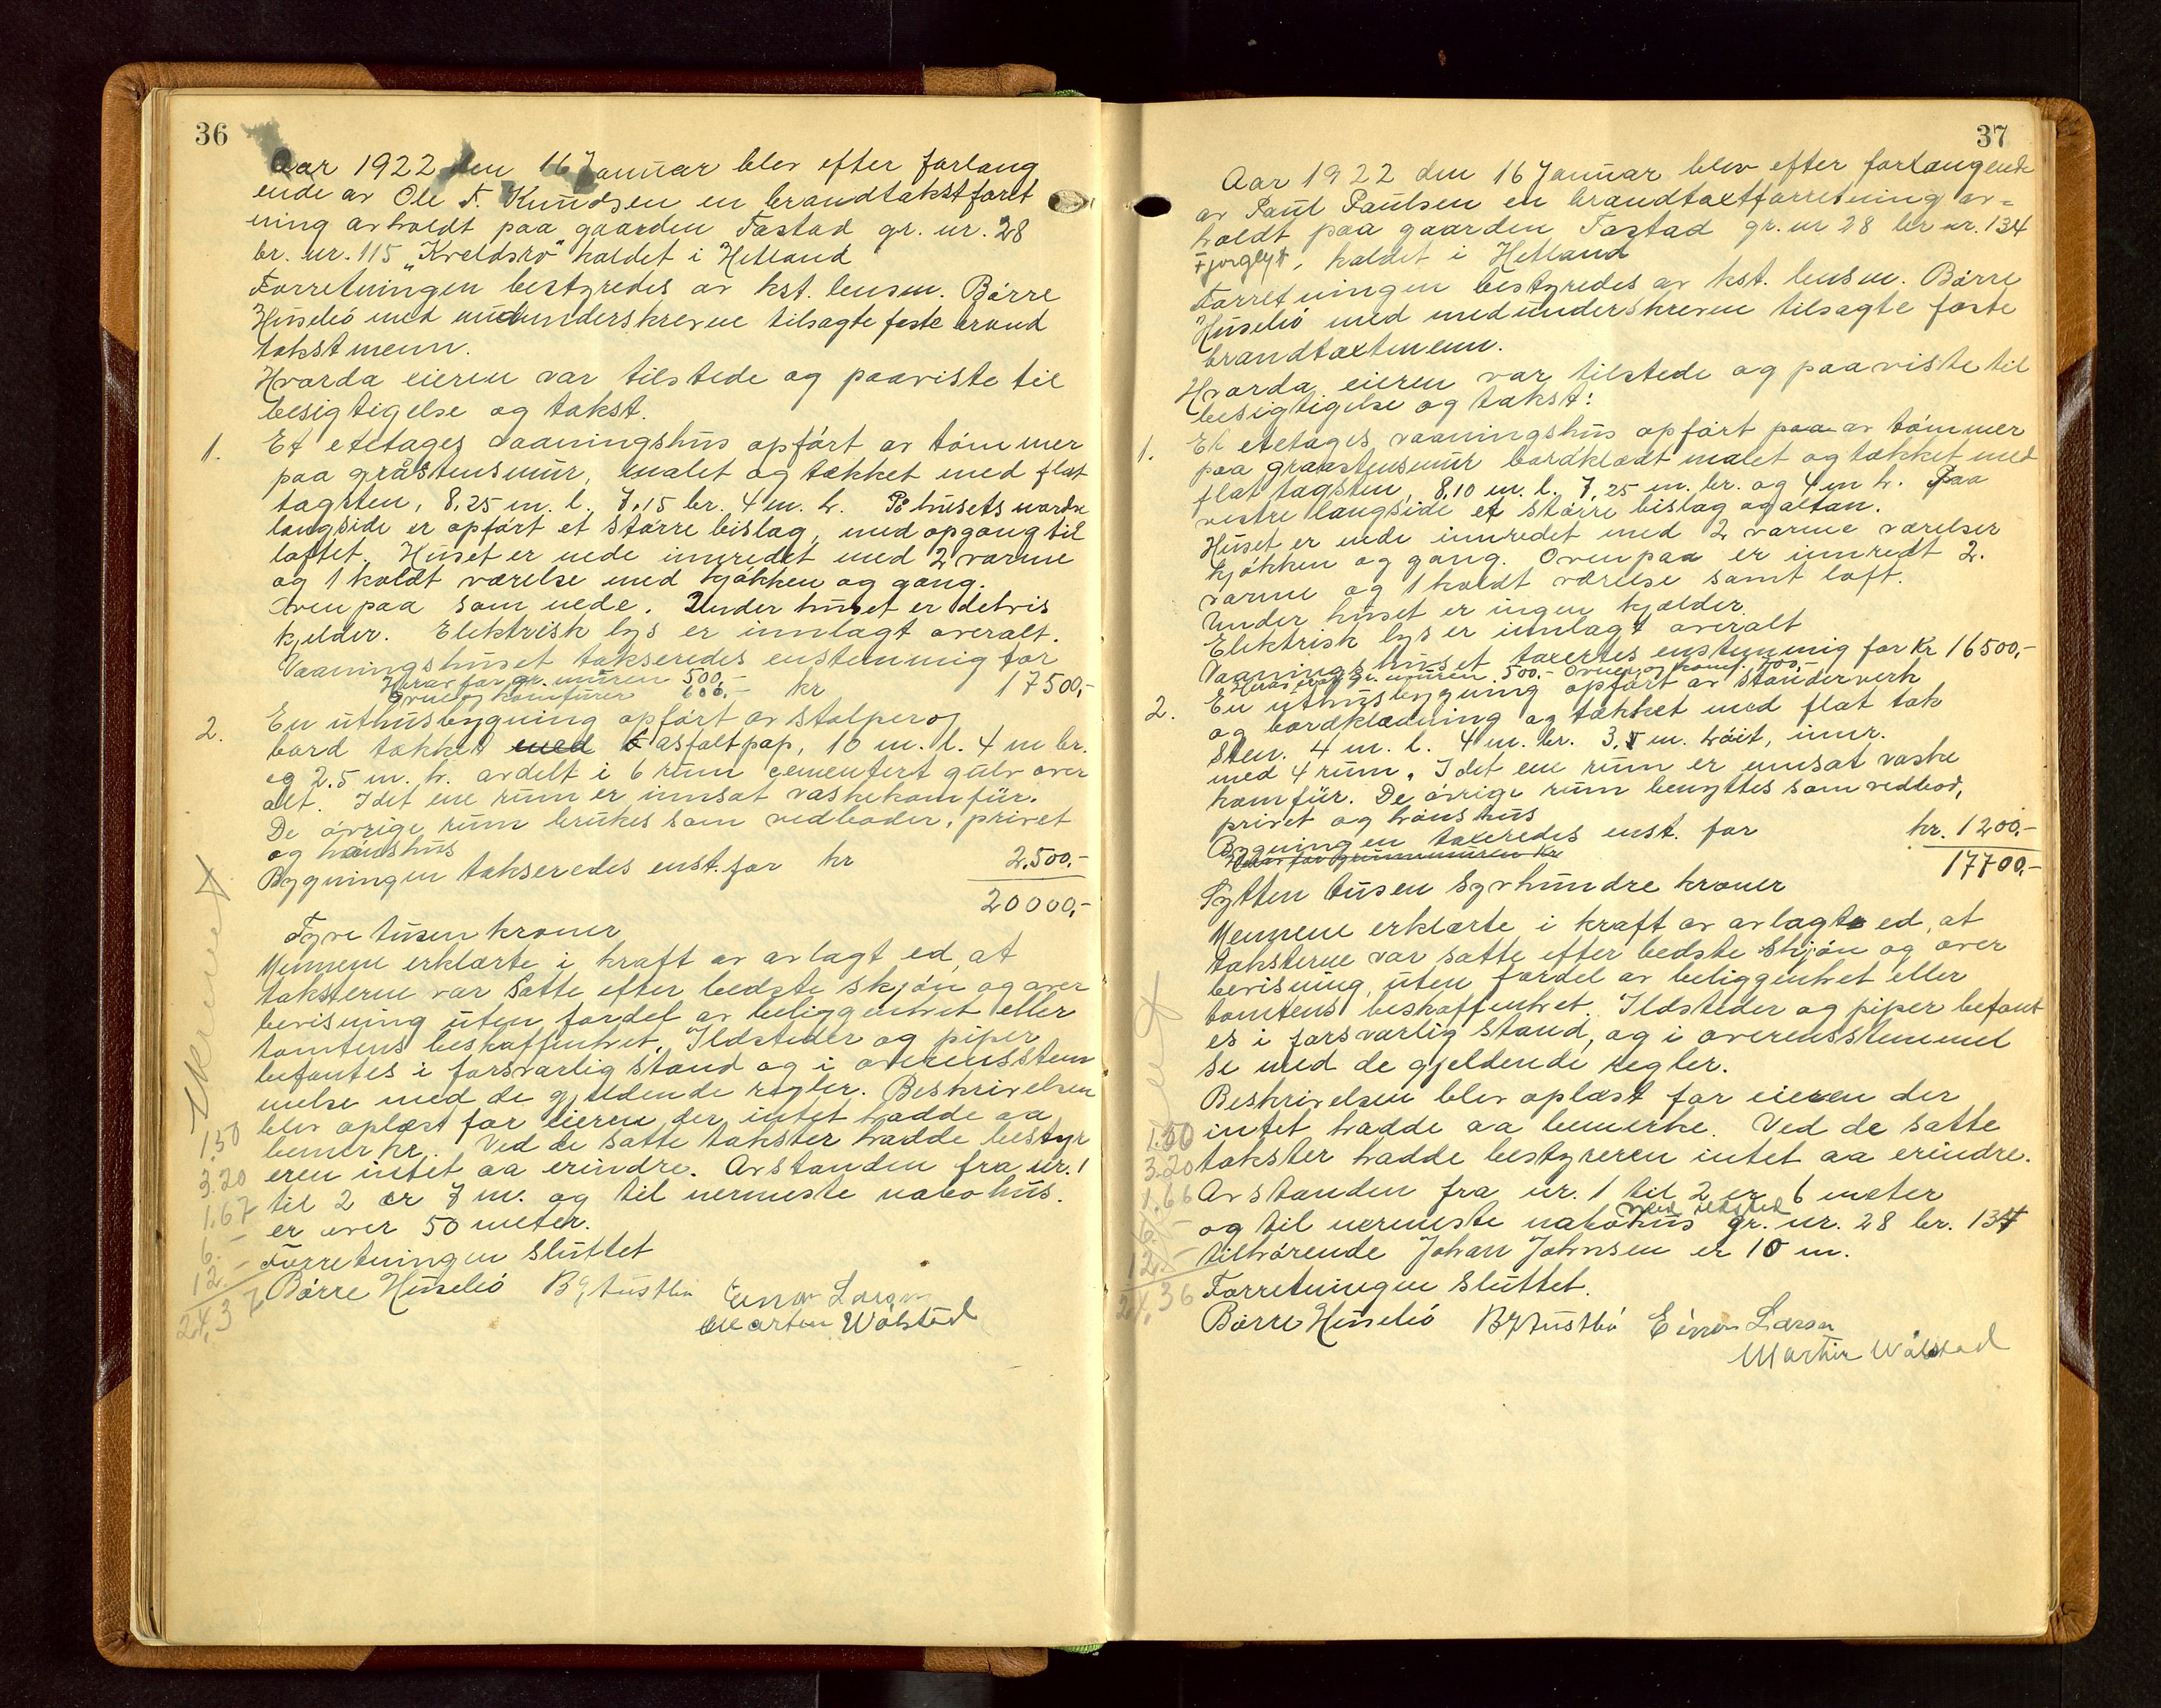 36
Aar 1922 den 16 Januar blev efter forlang
ende av Ole T. Knudsen en brandtakstforet
ning avholdt paa gaarden Tastad gr. nr. 28
br. nr. 115 "Kveldsro" kaldet i Hetland
Forretningen bestyredes av kst. lensm. Börre
Huselió med medunderskrevne tilsagte faste brand
takstmenn.
Hvorda eieren var tilstede og paaviste til
besigtigelse og takst.
1. Et etetages vaaningshus opfört av tömmer
paa gråstensmur, malet og tækket med flat
tagsten, 8,25 m. l. 7,15 br. 4 m. h. På husets nordre
langside er opfört et större bislag, med opgang til
loftet. Huset er nede innredet med 2 varme
og 1 koldt værelse med kjökken og gang.
Ovenpaa som nede. Under huset er delvis
kjelder. Elektrisk lys er innlagt overalt.
Vaaningshuset takseredes enstemmig for
Herav for gr. muren 500,-
Ovne og komfurer 600,- kr 17500,-
2. En uthusbygning opfört av stolper og
bord tækket med asfaltpap, 10 m. l. 4 m br.
og 2.5 m. h. avdelt i 6 rum cementert gulv over
alt. I det ene rum er innsat vaskekomfür.
De övrige rum brukes som vedboder, privet
og hönshus
Bygningen takseredes enst. for kr 2.500.-
20000,-
Tyve tusen kroner
Mennene erklærte i kraft av avlagt ed, at
taksterne var satte efter bedste skjön og over
bevisning uten fordel av beliggenhet eller
tomtens beskaffenhet. Ildsteder og piper
befantes i forsvarlig stand og i overensstem
melse med de gjeldende regler. Beskrivelsen
blev oplæst for eieren der intet hadde aa
bemerke. Ved de satte takster hadde bestyr
eren intet aa erindre. Avstanden fra nr. 1
til 2 er 7 m. og til nermeste nabohus.
er over 50 meter.
Forretningen sluttet
Börre Huselió Einar Larsen
Martin Wölstad
Utkrevet
1,50
3.20
1.67
6.-
12.-
24,37
37
Aar 1922 den 16 Januar blev efter forlangende
av Paul Paulsen en brandtaxtforretning av=
holdt paa gaarden Tastad gr. nr 28 br nr. 134
, kaldet i Hetland
Forretningen bestyredes av kst. lensm. Börre
Huselió med medunderskrevne tilsagte faste
brandtaxtmenn.
Hvorda eieren var tilstede og paaviste til
besigtigelse og takst:
1. Et etetages vaaningshus opfört paa av tömmer
paa graastensmur bordklædt malet og tækket med
flat tagsten, 8,10 m. l. 7,25 m. br. og 4 m h. Paa
vestre langside et större bislag og altan.
Huset er nede innredet med 2 varme værelser
kjökken og gang. Ovenpaa er innredt 2.
varme og 1 koldt værelse samt loft.
Under huset er ingen kjælder.
Elektrisk lys er innlagt overalt
Vaaningshuset taxertes enstemmig for kr 16500,-
Herav for gr. muren 500.- Ovner og komf. 700,-
2. En uthusbygning opfört av stenderverk
og bordklædning og tækket med flat tak
sten. 4 m. l. 4 m. br. 3,5 m. höit, innr.
med 4 rum. I det ene rum er innsat vaske
komfür. De övrige rum benyttes som vedbod,
privet og hönshus
Bygningen taxeredes enst. for kr. 1200,-
Herav for grunnmuren kr
17700,-
Sytten tusen syvhundre kroner
Mennene erklærte i kraft av avlagte ed, at
taksterne var satte efter bedste skjön og over
bevisning, uten fordel av beliggenhet eller
tomtens beskaffenhet. Ildsteder og piper befant
es i forsvarlig stand, og i overensstemmel
se med de gjeldende regler.
Beskrivelsen blev oplæst for eieren der
intet hadde aa bemerke. Ved de satte
takster hadde bestyreren intet aa erindre.
Avstanden fra nr. 1 til 2 er 6 meter
og til nermeste nabohus med ildsted gr. nr. 28 br. 137
tilhörende Johan Johnsen er 10 m.
Forretningen sluttet.
Börre Huselió Einar Larsen
Martin Wölstad
1.50
3.20
1.66
6.-
12.-
24,36